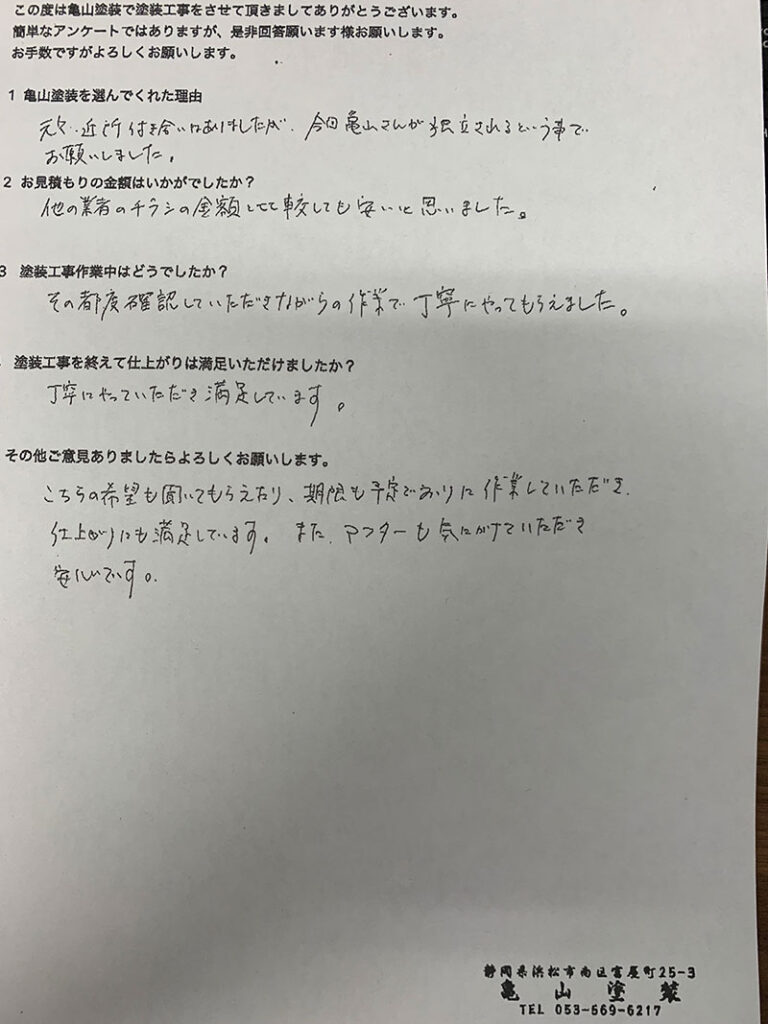 この度は亀山塗装で塗装工事をさせて頂きましてありがとうございます。
簡単なアンケートではありますが、是非回答願います様お願いします。
お手数ですがよろしくお願いします。
1 亀山塗装を選んでくれた理由
元々、近所付き合いはありましたが、今回亀山さんが独立されるという事で
お願いしました。
2 お見積もりの金額はいかがでしたか?
他の業者のチラシの金額と比較しても安いと思いました。
3 塗装工事作業中はどうでしたか?
その都度確認していただきながらの作業で丁寧にやってもらえました。
塗装工事を終えて仕上がりは満足いただけましたか?
丁寧にやっていただき満足しています。
その他ご意見ありましたらよろしくお願いします。
こちらの希望も聞いてもらえたり、期限も予定どおりに作業していただき、
仕上がりにも満足しています。また、アフターも気にかけていただき
安心です。
静岡県浜松市南区富屋町25-3
亀山塗装
TEL 053-569-6217